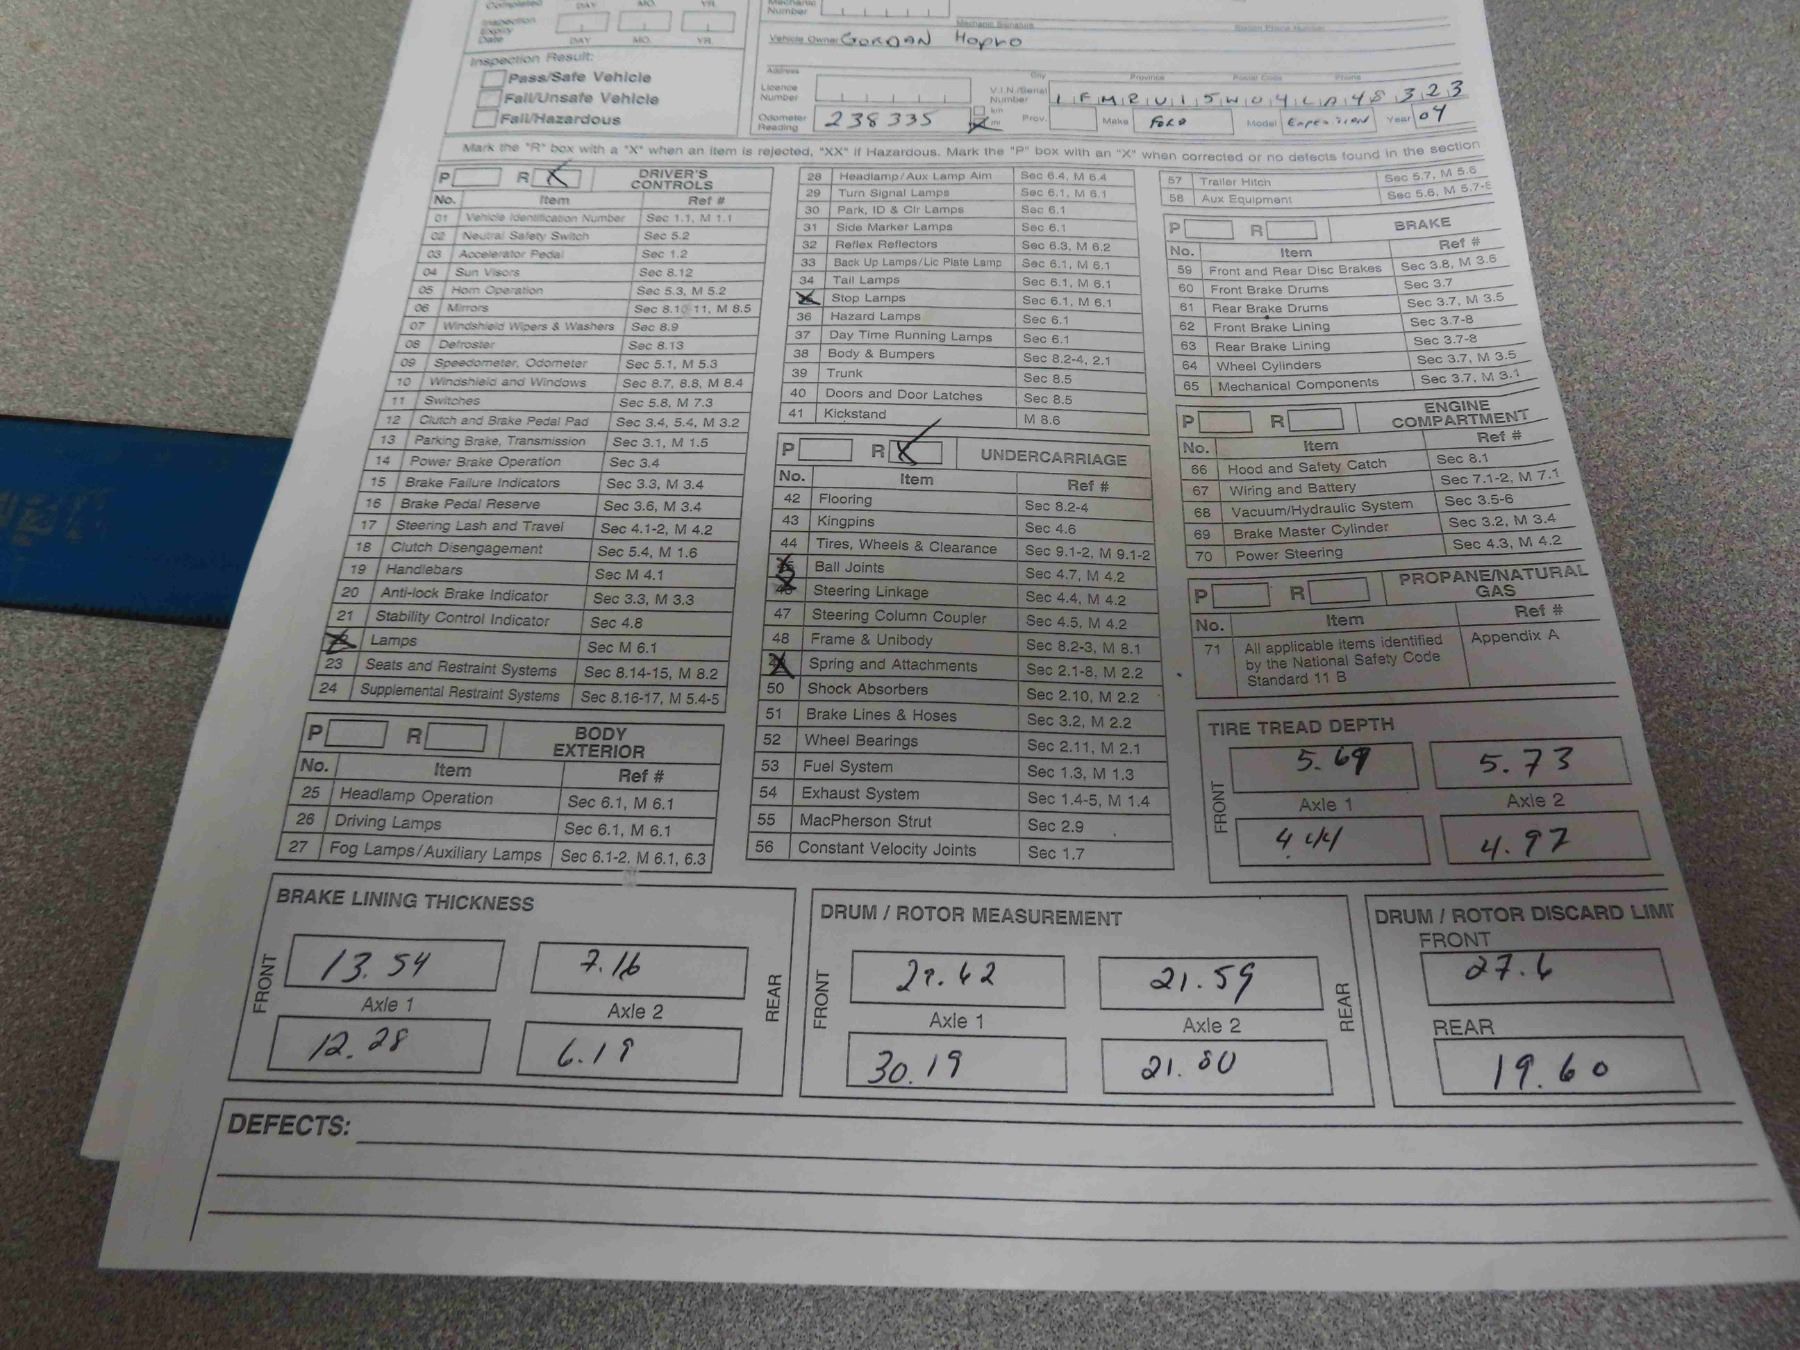 Completed DAY MO. YR.
Inspection Expiry Date DAY MO. YR.
Inspection Result:
Pass/Safe Vehicle
Fail/Unsafe Vehicle
Fail/Hazardous
Mechanic Number
Mechanic Signature
Station Phone Number
Vehicle Owner GORDAN
Address City Province Postal Code Phone
Licence Number
V.I.N./Serial Number 1FMRU15W04LA48323
Odometer Reading 238335 km mi Prov. Make FORD Model Year 04
Mark the "R" box with a "X" when an item is rejected, "XX" if Hazardous. Mark the "P" box with an "X" when corrected or no defects found in the section
P R X DRIVER'S CONTROLS
No. Item Ref #
01 Vehicle Identification Number Sec 1.1, M 1.1
02 Neutral Safety Switch Sec 5.2
03 Accelerator Pedal Sec 1.2
04 Sun Visors Sec 8.12
05 Horn Operation Sec 5.3, M 5.2
06 Mirrors Sec 8.10-11, M 8.5
07 Windshield Wipers & Washers Sec 8.9
08 Defroster Sec 8.13
09 Speedometer, Odometer Sec 5.1, M 5.3
10 Windshield and Windows Sec 8.7, 8.8, M 8.4
11 Switches Sec 5.8, M 7.3
12 Clutch and Brake Pedal Pad Sec 3.4, 5.4, M 3.2
13 Parking Brake, Transmission Sec 3.1, M 1.5
14 Power Brake Operation Sec 3.4
15 Brake Failure Indicators Sec 3.3, M 3.4
16 Brake Pedal Reserve Sec 3.6, M 3.4
17 Steering Lash and Travel Sec 4.1-2, M 4.2
18 Clutch Disengagement Sec 5.4, M 1.6
19 Handlebars Sec M 4.1
20 Anti-lock Brake Indicator Sec 3.3, M 3.3
21 Stability Control Indicator Sec 4.8
X Lamps Sec M 6.1
23 Seats and Restraint Systems Sec 8.14-15, M 8.2
24 Supplemental Restraint Systems Sec 8.16-17, M 5.4-5
P R BODY EXTERIOR
No. Item Ref #
25 Headlamp Operation Sec 6.1, M 6.1
26 Driving Lamps Sec 6.1, M 6.1
27 Fog Lamps/Auxiliary Lamps Sec 6.1-2, M 6.1, 6.3
28 Headlamp/Aux Lamp Aim Sec 6.4, M 6.4
29 Turn Signal Lamps Sec 6.1, M 6.1
30 Park, ID & Clr Lamps Sec 6.1
31 Side Marker Lamps Sec 6.1
32 Reflex Reflectors Sec 6.3, M 6.2
33 Back Up Lamps/Lic Plate Lamp Sec 6.1, M 6.1
34 Tail Lamps Sec 6.1, M 6.1
X Stop Lamps Sec 6.1, M 6.1
36 Hazard Lamps Sec 6.1
37 Day Time Running Lamps Sec 6.1
38 Body & Bumpers Sec 8.2-4, 2.1
39 Trunk Sec 8.5
40 Doors and Door Latches Sec 8.5
41 Kickstand M 8.6
P R X UNDERCARRIAGE
No. Item Ref #
42 Flooring Sec 8.2-4
43 Kingpins Sec 4.6
44 Tires, Wheels & Clearance Sec 9.1-2, M 9.1-2
X Ball Joints Sec 4.7, M 4.2
X Steering Linkage Sec 4.4, M 4.2
47 Steering Column Coupler Sec 4.5, M 4.2
48 Frame & Unibody Sec 8.2-3, M 8.1
X Spring and Attachments Sec 2.1-8, M 2.2
50 Shock Absorbers Sec 2.10, M 2.2
51 Brake Lines & Hoses Sec 3.2, M 2.2
52 Wheel Bearings Sec 2.11, M 2.1
53 Fuel System Sec 1.3, M 1.3
54 Exhaust System Sec 1.4-5, M 1.4
55 MacPherson Strut Sec 2.9
56 Constant Velocity Joints Sec 1.7
57 Trailer Hitch Sec 5.7, M 5.6
58 Aux Equipment Sec 5.6, M 5.7-
P R BRAKE
No. Item Ref #
59 Front and Rear Disc Brakes Sec 3.8, M 3.6
60 Front Brake Drums Sec 3.7
61 Rear Brake Drums Sec 3.7, M 3.5
62 Front Brake Lining Sec 3.7-8
63 Rear Brake Lining Sec 3.7-8
64 Wheel Cylinders Sec 3.7, M 3.5
65 Mechanical Components Sec 3.7, M 3.1
P R ENGINE COMPARTMENT
No. Item Ref #
66 Hood and Safety Catch Sec 8.1
67 Wiring and Battery Sec 7.1-2, M 7.1
68 Vacuum/Hydraulic System Sec 3.5-6
69 Brake Master Cylinder Sec 3.2, M 3.4
70 Power Steering Sec 4.3, M 4.2
P R PROPANE/NATURAL GAS
No. Item Ref #
71 All applicable items identified Appendix A
by the National Safety Code
Standard 11 B
TIRE TREAD DEPTH
FRONT
5.69 5.73
Axle 1 Axle 2
4.44 4.97
BRAKE LINING THICKNESS
FRONT REAR
13.54 7.16
Axle 1 Axle 2
12.28 6.19
DRUM / ROTOR MEASUREMENT
FRONT REAR
21.59
Axle 1 Axle 2
30.19 21.80
DRUM / ROTOR DISCARD LIMI
FRONT
27.6
REAR
19.60
DEFECTS: